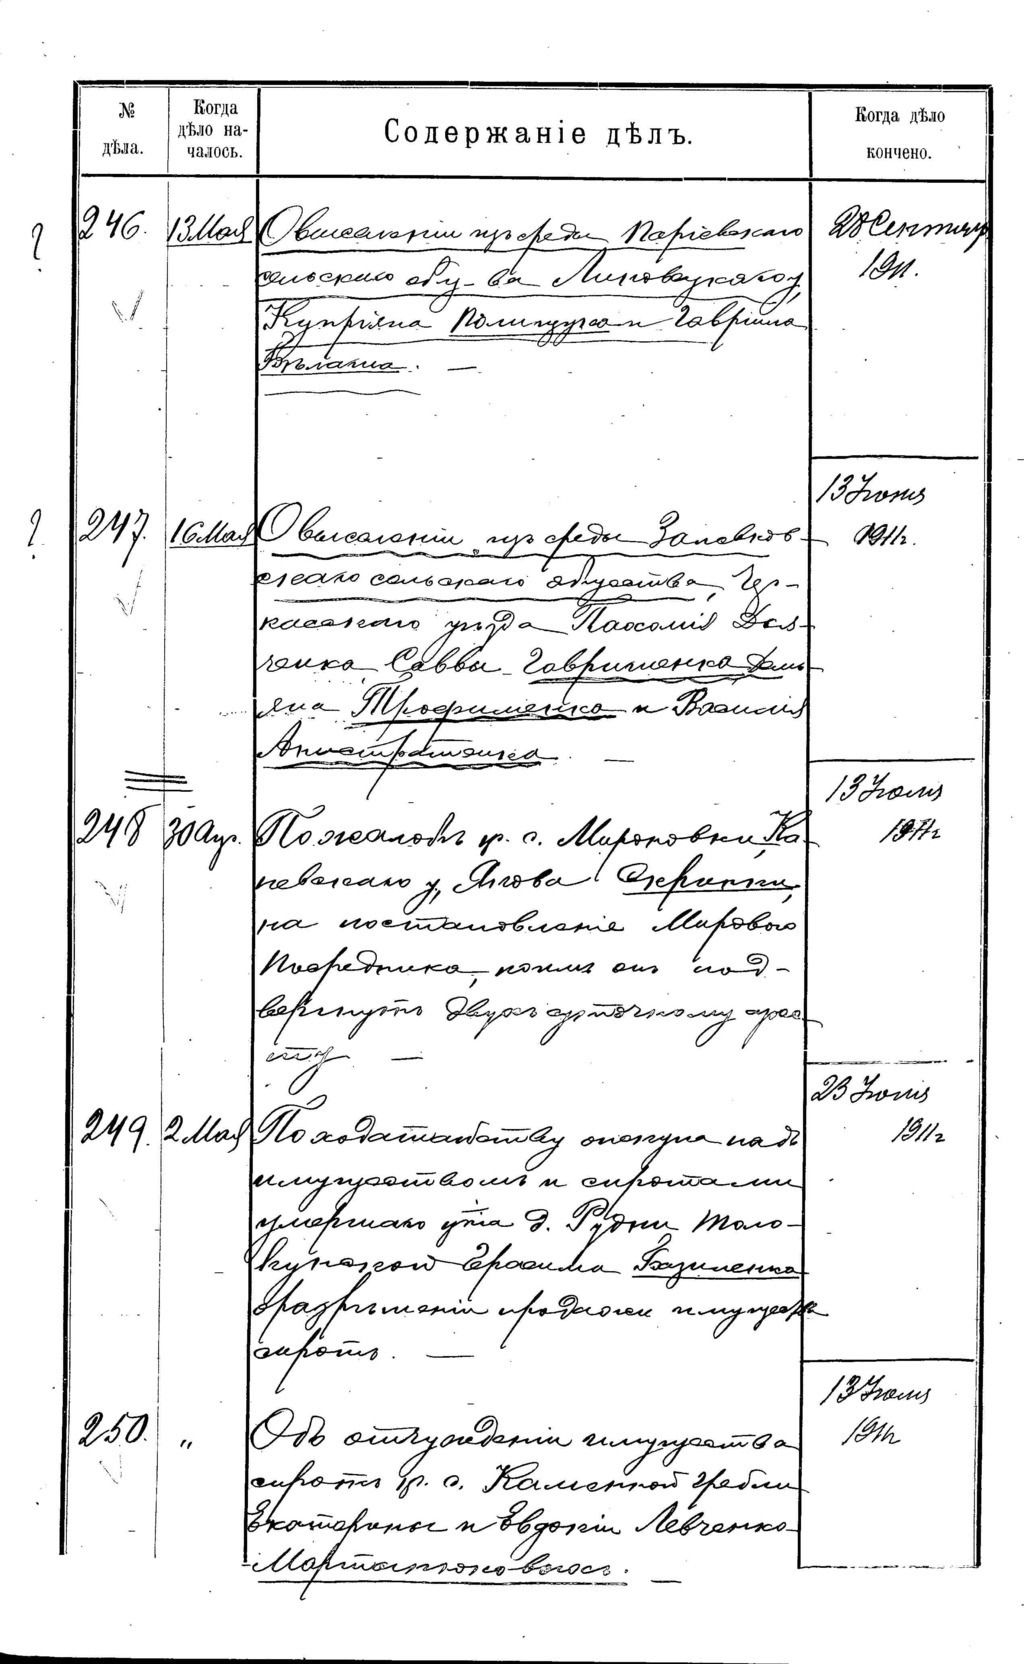 № дѣла.
Когда дѣло на-чалось.
Содержаніе дѣлъ.
Когда дѣло кончено.
? 246. 13 Мая О выселеніи изъ среды 28 Сентяб
сельскаго общ-ва Липовецкаго у, 1911.
Купріяна Полищука и Гавріила
.—
13 Іюня
? 247. 16 Мая О выселеніи изъ среды 1911г.
скаго сельскаго общества, Чер-
касскаго уѣзда Пахомія Дья-
ченка Саввы Гавриленка Демь-
яна Трофименка и Василія
Анистратенка. —
13 Іюня
248 30 Апр. По жалобѣ кр. с. Мироновки, Ка- 1911г
невскаго у, Якова Скрипки,
на постановленіе Мирового
Посредника, коимъ онъ под-
вергнутъ двухсуточному арес-
ту. —
23 Іюня
249. 2 Мая По ходатайству опекуна надъ 1911г
имуществомъ и сиротами
умершаго кр-на д. Рудни Толо-
кунской Герасима Базиленка
о разрѣшеніи продажи имущества
сиротъ. —
13 Іюня
250. " Объ отчужденіи имущества 1911г
сиротъ кр. с. Каменной Гребли
Екатерины и Евдокіи Левченко-
Мартынюковыхъ. —